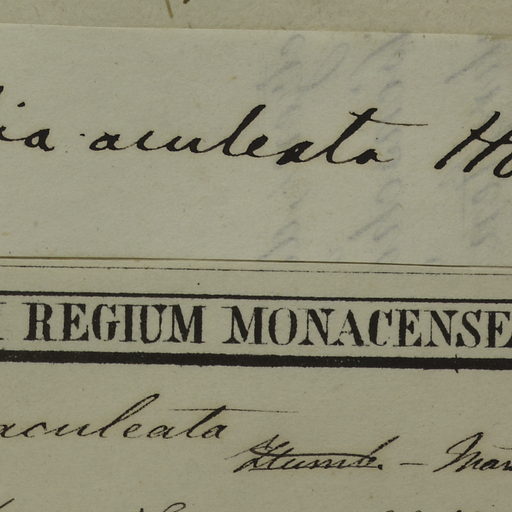 ia aculeata H
REGIUM MONACENSE
aculeata Humb. – Mar